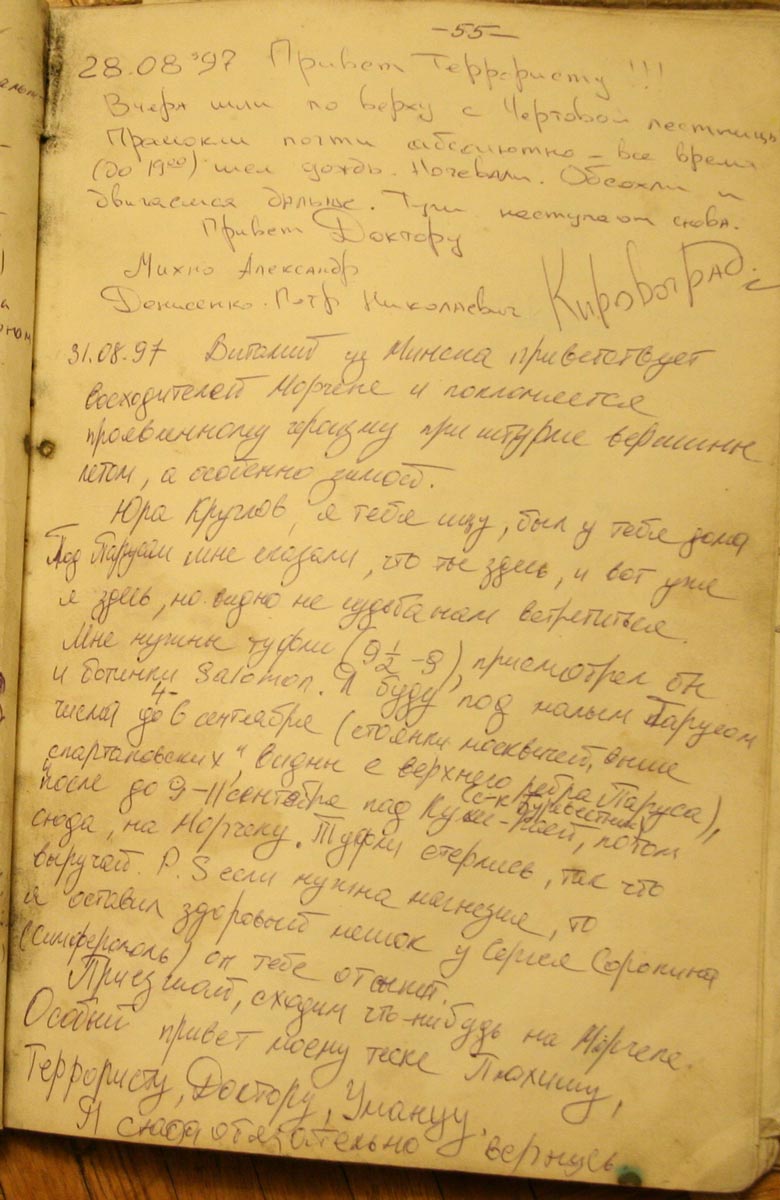 -55-
28.08'97 Привет Террористу!!!
Вчера шли по верху с Чертовой лестницы
Промокли почти абсолютно - все время
(до 19⁰⁰) шел дождь. Ночевали. Обсохли и
двигаемся дальше. Тучи наступают снова.
Привет Доктору
Михно Александр
Денисенко Петр Николаевич Кировоград
31.08.97 Виталий из Минска приветствует
восходителей Морчеки и поклоняется
проявленному героизму при штурме вершины
летом, а особенно зимой.
Юра Круглов, я тебя ищу, был у тебя дома
Под Парусом мне сказали, что ты здесь, и вот уже
я здесь, но видно не судьба нам встретиться.
Мне нужны туфли (9 1/2 - 9), присмотрел бы
и ботинки Salomon. Я буду под малым Парусом
числа до 4- в сентября (стоянки москвичей, выше
спартаковских", видны с верхнего ребра Паруса),
после до 9-11 сентября под Куши-Каей, потом
(с-к Буревестник)
сюда, на Морчеку. Туфли стерлись, так что
выручай. P.S если нужна магнезия, то
я оставил здоровый мешок у Сергея Сорокина
(Симферополь) он тебе отсыпет.
Приезжай, сходим что-нибудь на Морчеке.
Особый привет моему тезке
Террористу, Доктору, Уманцу.
Я сюда обязательно вернусь